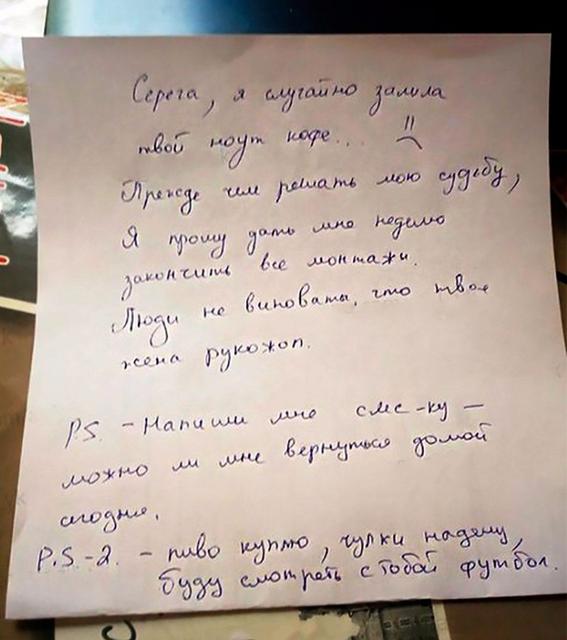 Серега, я случайно залила
твой ноут кофе...
Прежде чем решать мою судьбу,
Я прошу дать мне неделю
закончить все монтажи.
Люди не виноваты, что твоя
жена рукожоп.
P.S. - Напиши мне смс-ку -
можно ли мне вернуться домой
сегодня.
P.S.-2. - пиво куплю, чулки надену,
буду смотреть с тобой футбол.